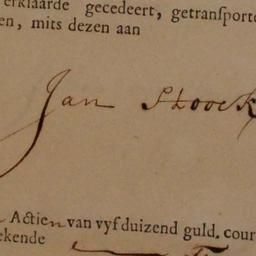 erklaarde gecedeert, getransporte
en, mits dezen aan
Jan Shoock
Actien van vyfduizend guld. cour
ekende